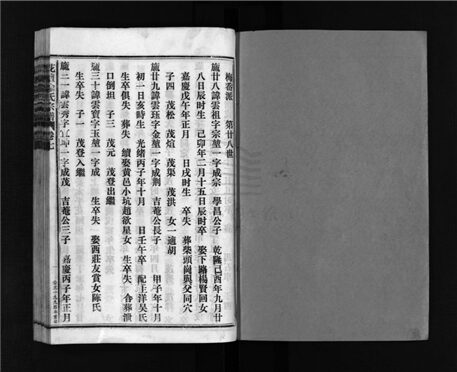 梅巷派 第廿八世
廿八諱雲祖字宗堃一字成宗 學昌公子 乾隆己酉年九月廿
八日辰时生 己卯年二月十五日辰时卒 娶下路楊賢回女
嘉慶戊午年正月 日戌时生 卒失 葬柴頭崗與父同穴
子四 茂松 茂煊 茂渠 茂洪 女一適胡
廿九諱雲珏字金堃一字成荆 吉菴公長子 甲子年十月
初一日亥時生 光緒丙子年十月 日壬午卒 配主洋吴氏
生卒俱失 葬失 續娶黄邑小坑趙歓星女 生卒失 合葬泄
口倒坦 子三 茂元 茂登出繼
三十諱雲寶字玉堃一字成 生卒失 娶西莊友賞女陳氏
生卒失 子一 茂登入繼
二一諱雲秀字 一字成茂 吉菴公三子 嘉慶丙子年正月
氏宗譜 卷七